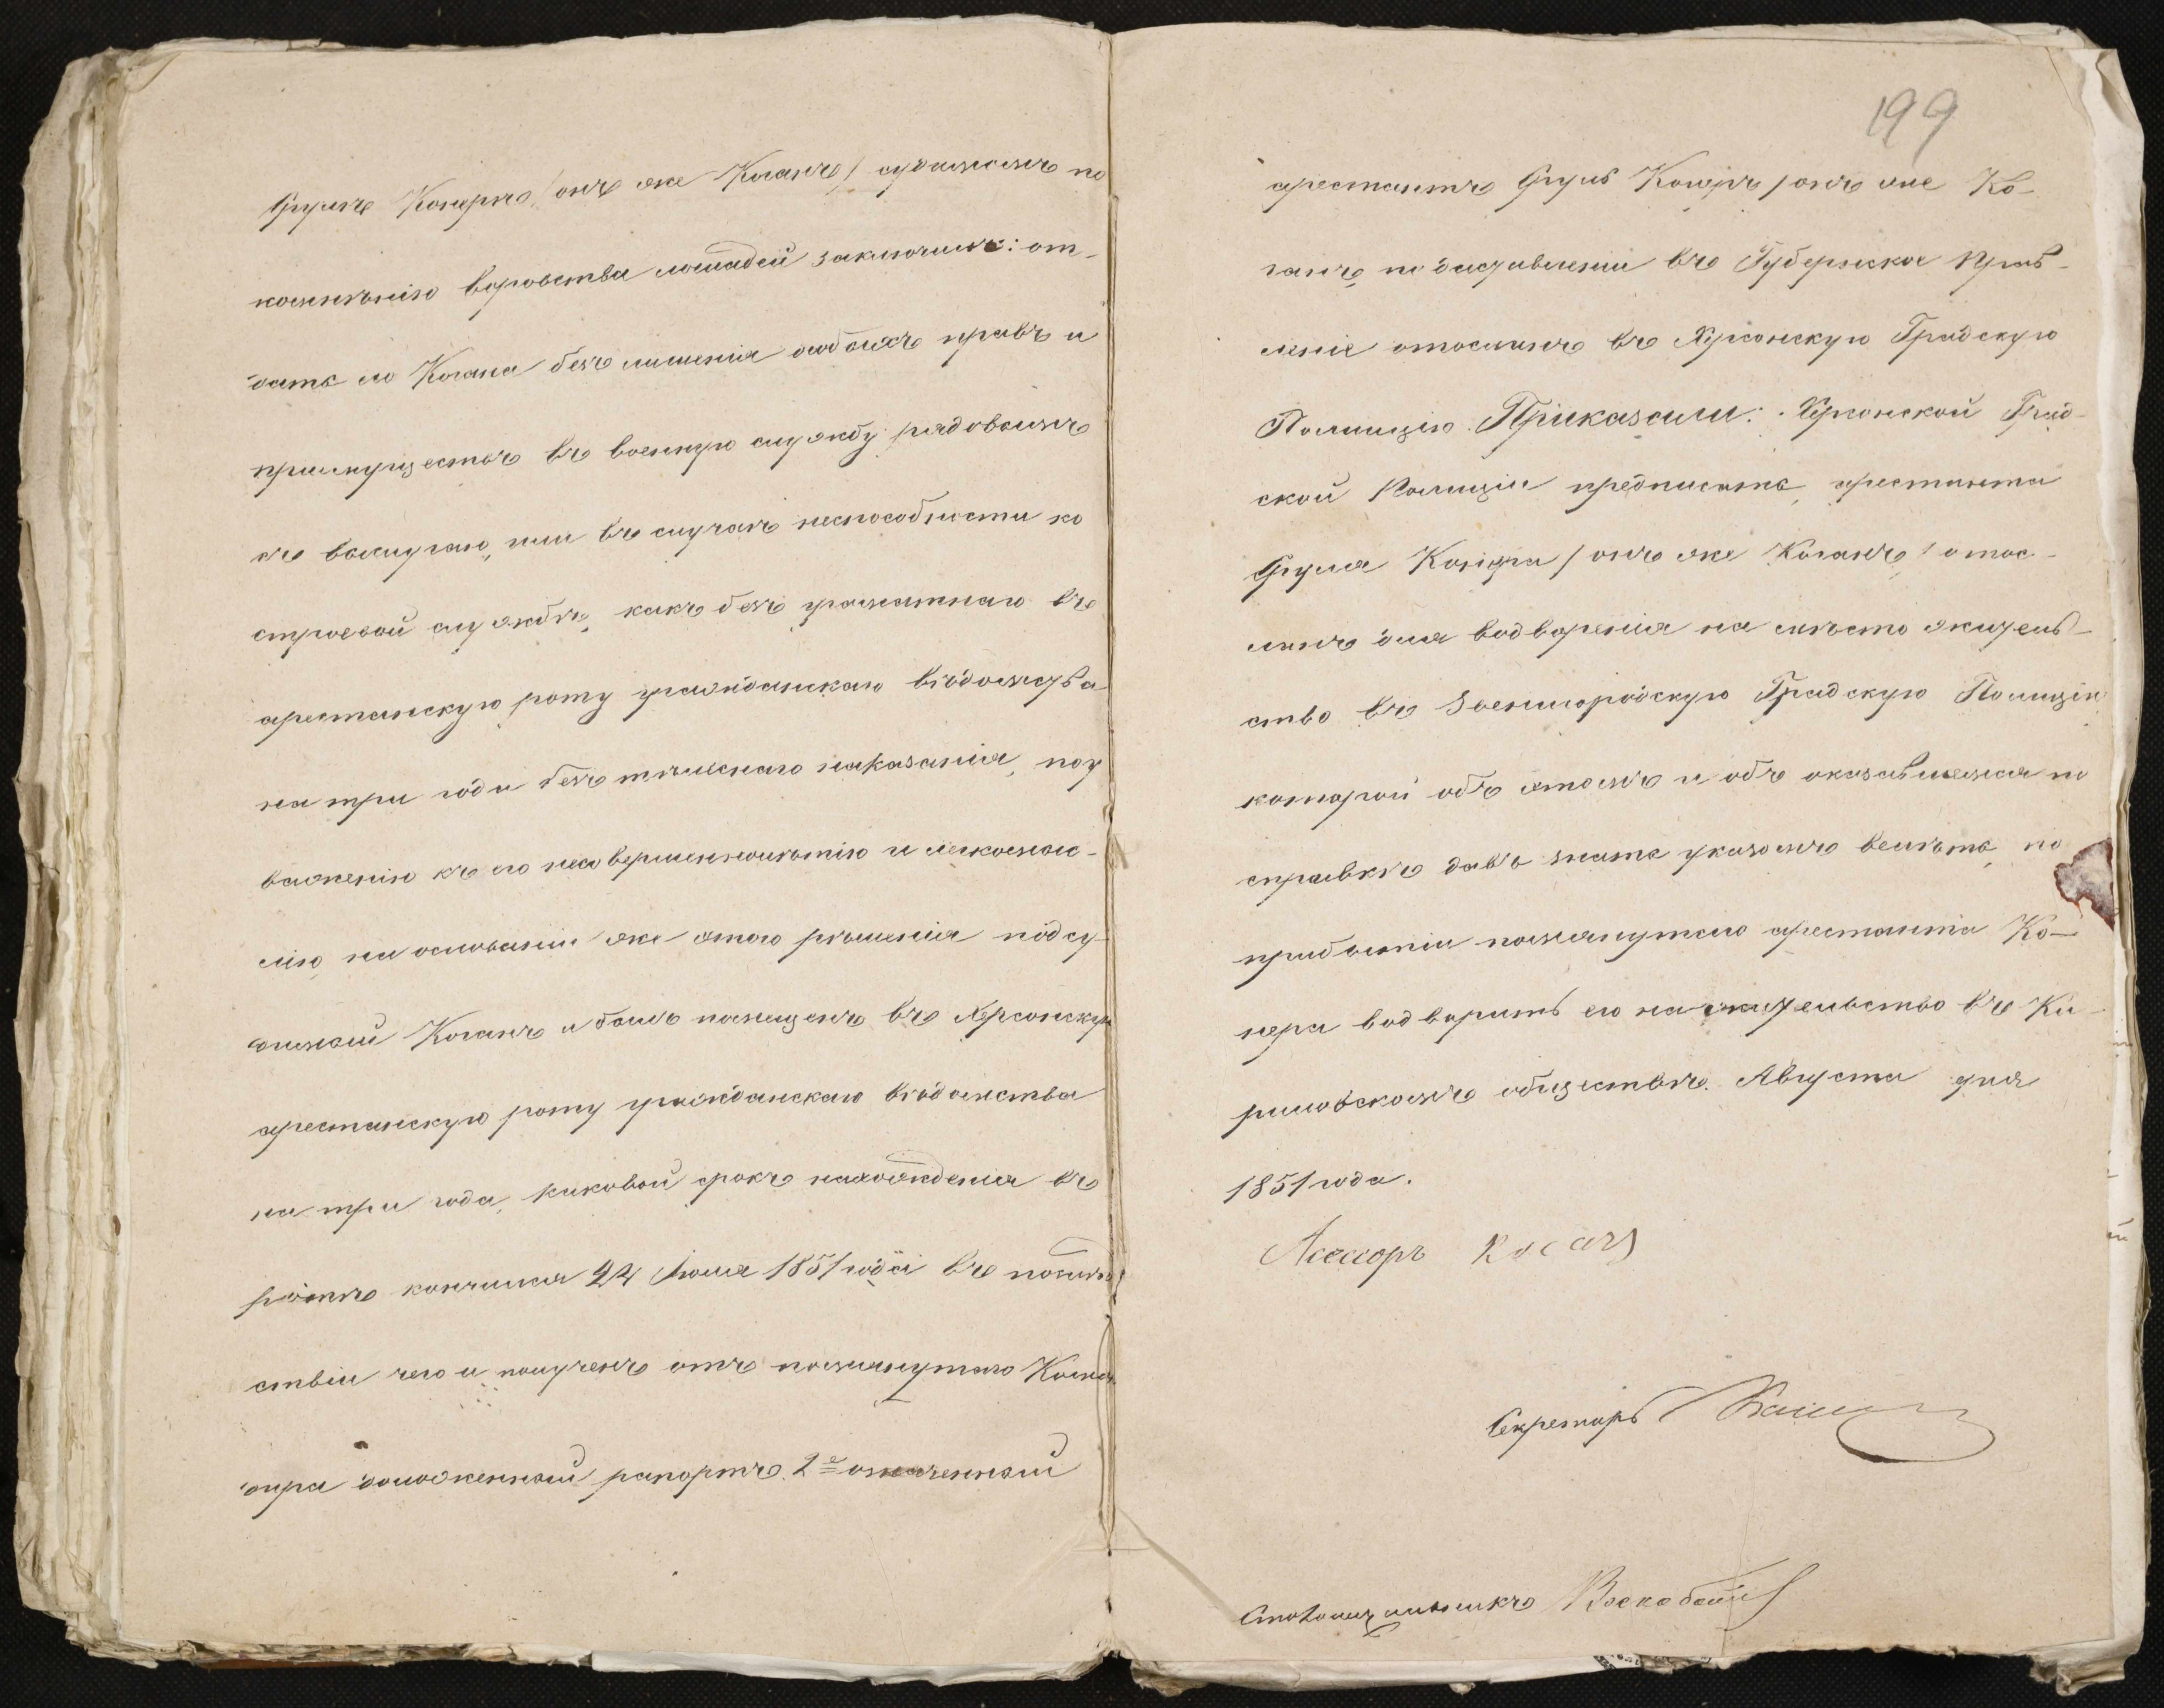 Сруль Конеръ /онъ же Коганъ/ судимымъ по
сомнѣнію воровства лошадей заключилъ: от-
дать его Когана безъ лишенія особыхъ правъ и
преимуществъ въ военную службу рядовымъ
съ выслугою, или въ случаѣ неспособности къ
строевой службѣ, какъ безъ грамотнаго въ
арестанскую роту гражданскаго вѣдомства
на три года безъ тѣлеснаго наказанія, по у
важенію къ его несовершеннолѣтію и легкомыс-
лію, на основаніи же этого рѣшенія подсу-
димый Коганъ и былъ помещенъ въ Херсонскую
арестанскую роту гражданскаго вѣдомства
на три года, каковой срокъ нахожденія въ
ротѣ кончился 22 Іюля 1851 года въ послѣд
ствіи чего и полученъ отъ помянутаго Коман
дира доложенный рапортъ. 2е означенный
199
арестантъ Сруль Конеръ /онъ же Ко-
ганъ, по доставленіи въ Губернское Прав-
леніе отосланъ въ Херсонскую Градскую
Полицію. Приказали: Херсонской Град-
ской Полиціи предписать, арестанта
Сруля Конера /онъ же Коганъ/ отос-
лать для водворенія на мѣсто житель-
ство въ Звенигородскую Градскую Полицію
которой объ этомъ и объ оказавшемся по
справкѣ давъ знать указомъ велѣть, по
прибытіи помянутаго арестанта Ко-
нера водворить его на жительство въ Ки-
риловскомъ обществѣ. Августа дня
1851 года.
Ассесоръ
Секретарь
Столоначальникъ